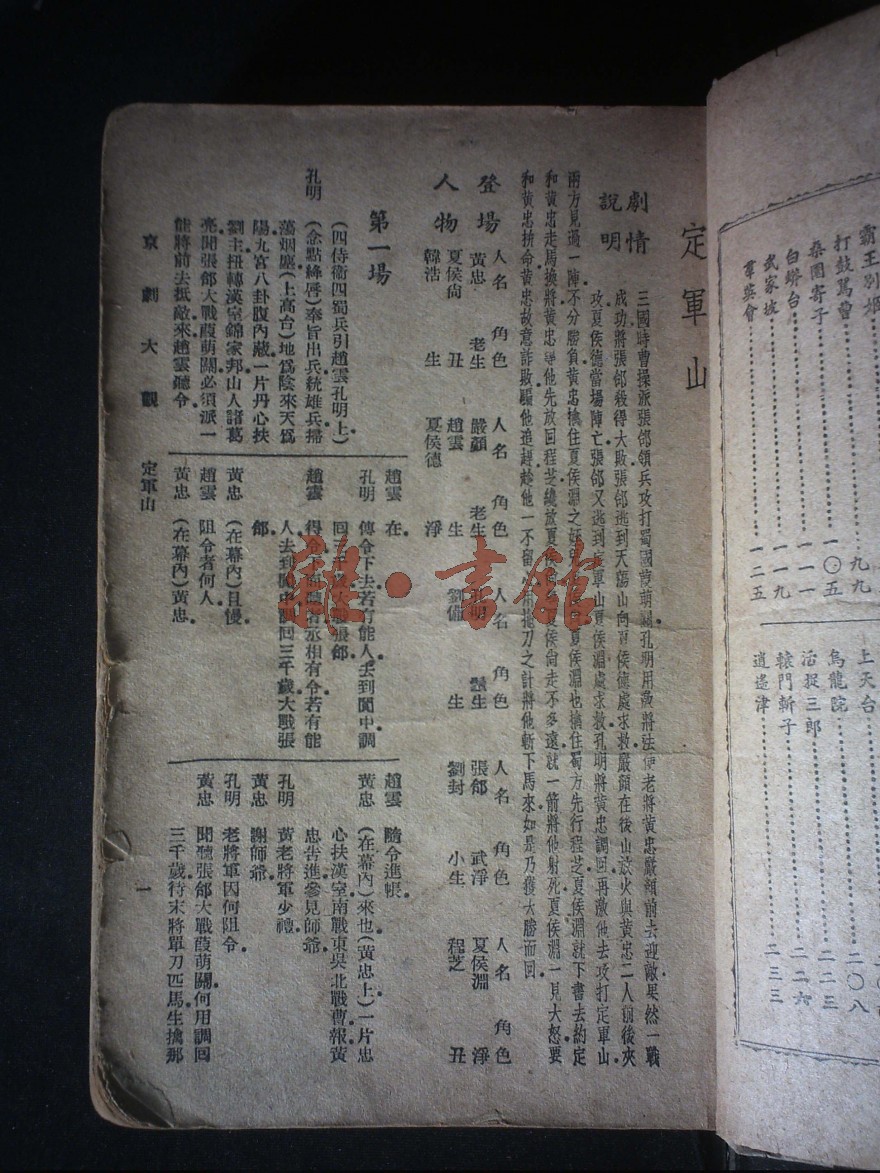 霸王別姬
打鼓罵曹 九九
桑園寄子 一〇五
白蟒台 一一一
武家坡 一一九
羣英會 一二五
上天台
烏龍院 二〇八
活捉三郎 二二三
轅門斬子 二二六
逍遙津 二三三
定軍山
劇情說明
三國時曹操派張郃領兵攻打蜀國葭萌關孔明用激將法使老將黃忠嚴顏前去迎敵果然一戰
成功將張郃殺得大敗張郃逃到天蕩山向夏侯德處求救嚴顏在後山放火與黃忠二人前後夾
攻夏侯德當場陣亡張郃又逃到定軍山夏侯淵處求救孔明將黃忠調回再激他去攻打定軍山
兩方見過一陣不分勝負黃忠擒住夏侯淵之姪夏侯尚夏侯淵也擒住蜀方先行程芝夏侯淵就下書去約定
和黃忠走馬換將黃忠等他先放回程芝纔放夏侯尚夏侯尚走不多遠就一箭將他射死夏侯淵一見大怒要
和黃忠拚命黃忠故意詐敗騙他追趕趁他一不留神用拖刀之計將他斬下馬來如是乃獲大勝而回
登場人物
人名 角色 人名 角色 人名 角色 人名 角色 人名 角色
黃忠 老生 嚴顏 老生 孔明 鬚生 張郃 武淨 夏侯淵 淨
夏侯尙 丑 趙雲 生 劉備 生 劉封 小生 程芝 丑
韓浩 生 夏侯德 淨
第一場
(四侍衞四蜀兵引趙雲孔明上)
孔明 (念點絳唇)奉旨出兵統雄兵掃
蕩烟塵(上高台)地爲陰來天爲
陽九宮八卦腹內藏一片丹心扶
劉主扭轉漢室錦家邦山人諸葛
亮聞張郃大戰葭萌關必須派一
能將前去抵敵來趙雲聽令
趙雲 在
孔明 傳令下去若有能人去到閬中調
回三千歲大戰張郃
趙雲 得令下面聽者丞相有令若有能
人去到閬中調回三千歲大戰張
郃
黃忠 (在幕內)且慢
趙雲 阻令者何人
黃忠 (在幕內)黃忠
趙雲 隨令進帳
黃忠 (在幕內)來也(黃忠上)一片忠
心扶漢室南戰東吳北戰曹報黃
忠吿進參見師爺
孔明 黃老將軍少禮
黃忠 謝師爺
孔明 老將軍因何阻令
黃忠 聞聽張郃大戰葭萌關何用調回
三千歲待末將單刀匹馬生擒那
京劇大觀 定軍山 一
雜·書館